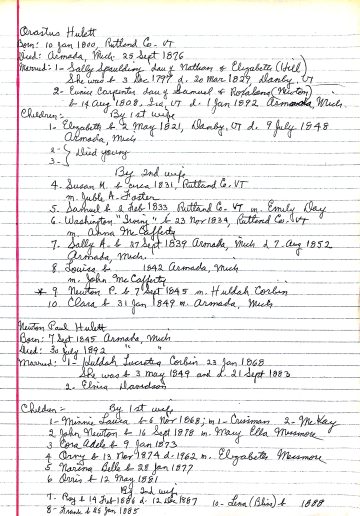 Erastus Hulett
Born: 10 Jan 1800, Rutland Co. VT
Died: Armada, Mich 25 Sept 1876
Married: 1- Sally Spaulding dau of Nathan & Elizabeth (Hill)
She was b 3 Dec 1797 d. 20 Mar 1829 Danby, VT
2- Eunice Carpenter dau of Samuel & (Newton)
b 14 Aug 1808, VT d. 1 Jan 1892 Armada, Mich.
Children: By 1st wife
1- Elizabeth b 2 May 1821, Danby, VT d. 9 July 1848
Armada, Mich
2- } Died young
3-
By 2nd wife
4. Susan M. b circa 1831, Rutland Co. VT
m. A. Foster
5. Samuel b 2 Feb 1833 Rutland Co. VT m. Emily Day
6. Washington "Irving" b 23 Nov 1834, Rutland Co. VT
m. Anna McCafferty
7. Sally A. b 27 Sept 1839 Armada, Mich d 7 Aug 1852
Armada, Mich.
8. Louisa b 1842 Armada, Mich
m. John McCafferty
* 9. Newton P. b 7 Sept 1845 m. Huldah Corbin
10. Clara b 31 Jan 1849 m. Armada, Mich
Newton Paul Hulett
Born: 7 Sept 1845 Armada, Mich
Died: 30 July 1892 " "
Married: 1- Huldah Lucretia Corbin 23 Jan 1868
She was b 3 May 1849 and d. 21 Sept 1883
2- Elvira Davidson
Children - By 1st wife
1- Minnie Laura b 6 Nov 1868; m 1- Crisman 2- McKay
2 John Newton b 16 Sept 1878 m. Mary Ella Messmore
3 Cora Adele b 9 Jan 1873
4 Orvy b 13 Nov 1874 d. 1962 m. Elizabeth Messmore
5 Belle b 28 Jan 1877
6 Orris b 12 May 1881
By 2nd wife
7. Roy b 14 Feb 1886 d. 12 Dec 1887 10- Lena (Bliss) b 1888
8- Frank b 25 Jan 1885